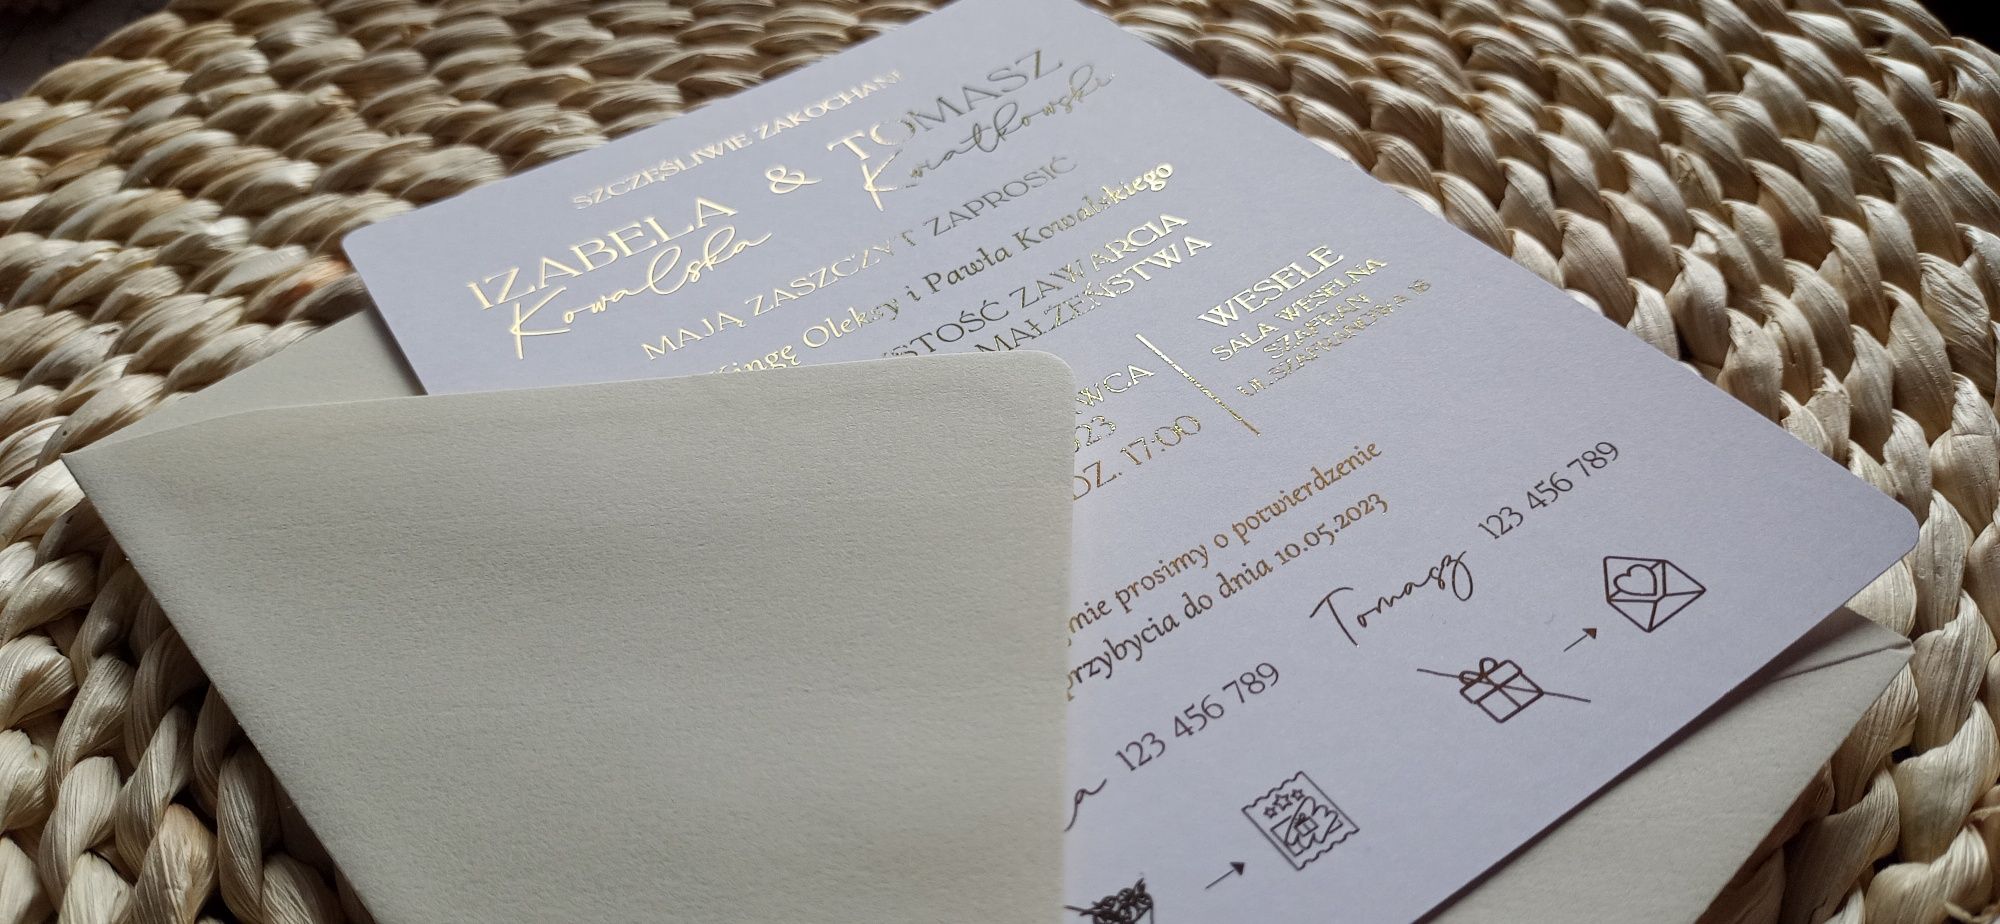 SZCZĘŚLIWIE ZAKOCHANI
IZABELA & TOMASZ
Kowalska Kwiatkowski
MAJĄ ZASZCZYT ZAPROSIĆ
Kingę Oleksy i Pawła Kowalskiego
STOŚĆ ZAWARCIA
MAŁŻEŃSTWA
WESELE
SALA WESELNA
SZAFRAN
UL. SZAFRANOWA 16
RWCA
023
DZ. 17:00
mie prosimy o potwierdzenie
przybycia do dnia 10.05.2023
a 123 456 789
Tomasz 123 456 789